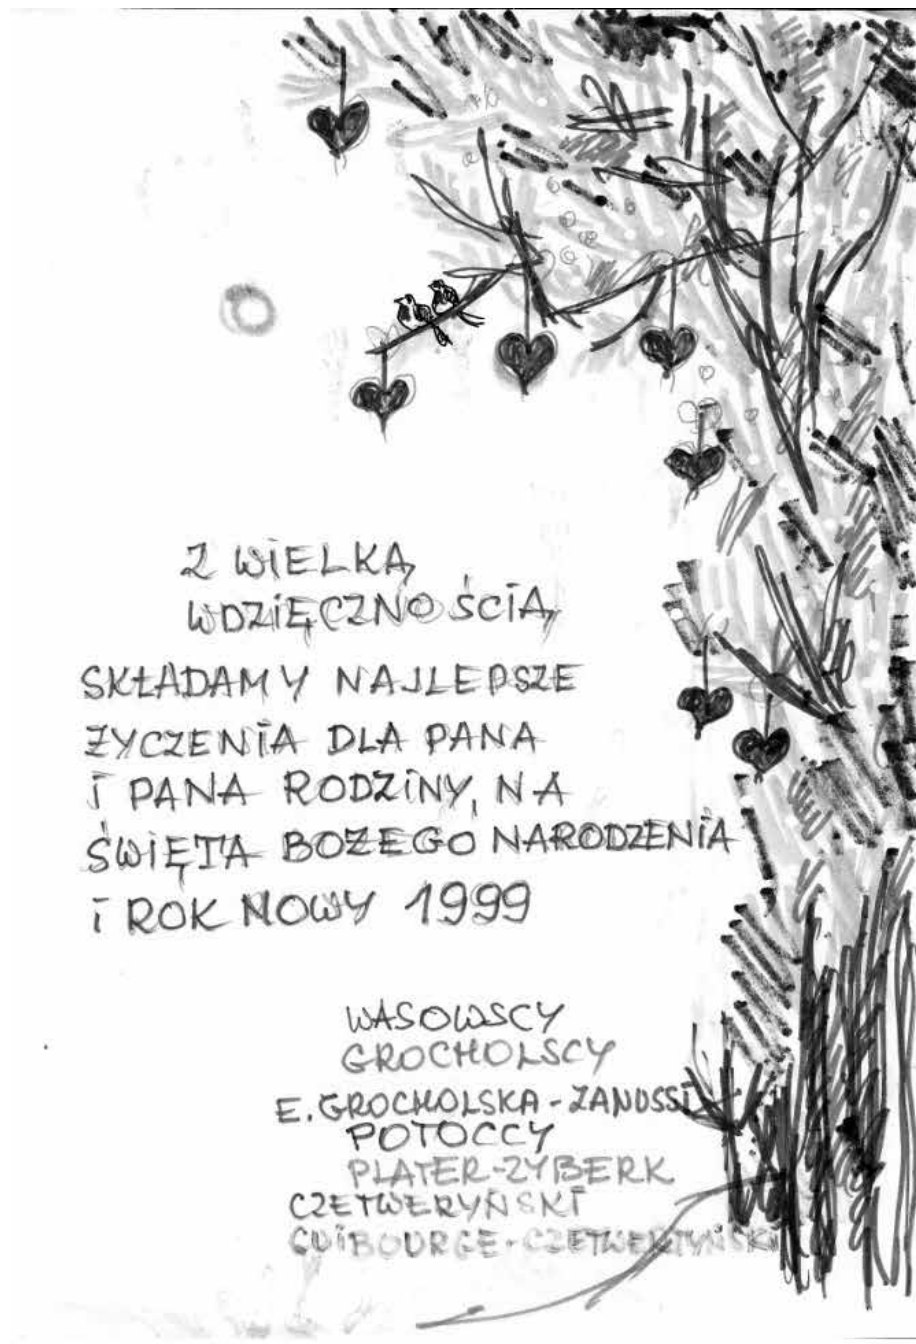 Z WIELKĄ
WDZIĘCZNOŚCIĄ
SKŁADAMY NAJLEPSZE
ŻYCZENIA DLA PANA
I PANA RODZINY, NA
ŚWIĘTA BOŻEGO NARODZENIA
I ROK NOWY 1999
WASOWSCY
GROCHOLSCY
E. GROCHOLSKA-ZANUSSI
POTOCCY
PLATER-ZYBERK
CZETWERYŃSKI
GUIBOURGE-CZETWERTYŃSKI